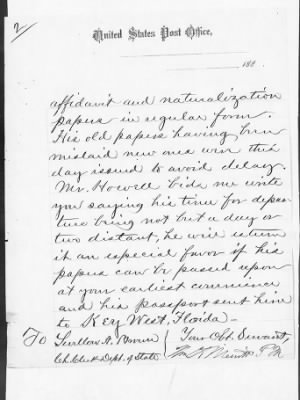 2
United States Post Office,
188
affidavit and naturalization
papers in regular form.
His old papers having been
mislaid new ones were this
day issued to avoid delay.
Mr. Howell bids me write
you saying his time for depar
ture being not but a day or
two distant, he will esteem
it an especial favor if his
papers can be passed upon
at your earliest convenience
and his passport sent him
to Key West, Florida—
To Sevellon A. Brown Your Obt. Servant,
Ch. Clerk Dept. of State P.M.